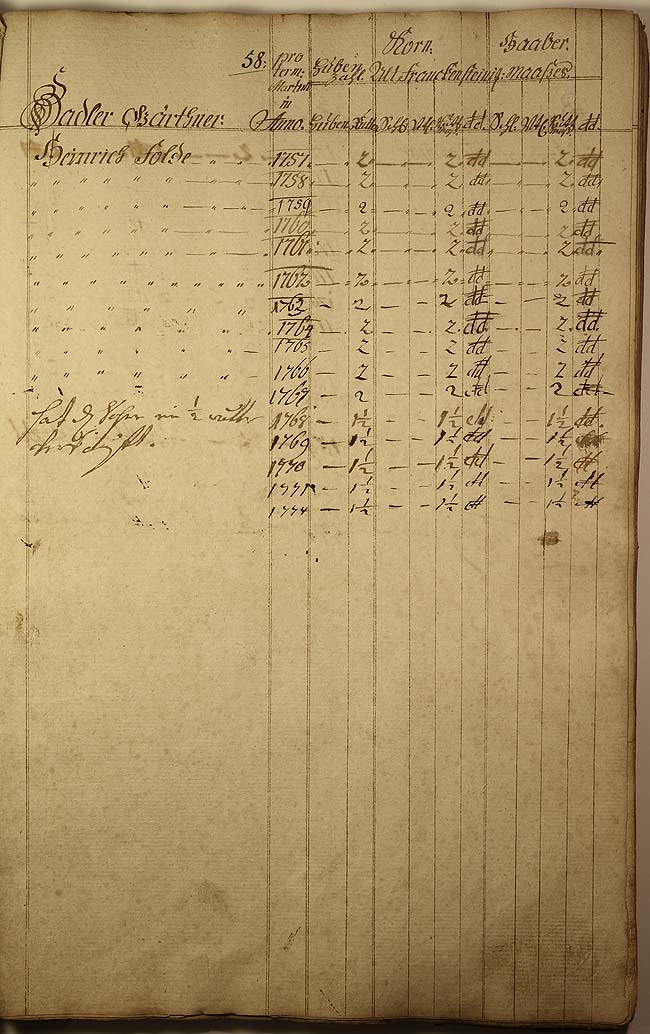 58.
pro term: Martini in Anno.
Huben Zahl
Korn.
Haaber.
Alt Franckensteinig: Maaßes.
Sadler Gärthner.
Huben. Ruth. Schl. Vtl. dd. Schl. Vtl. dd.
Heinrich Folde „ „ 1757. — 2 — — 2 dd — — 2 dd
„ „ „ „ „ 1758 — 2 — — 2 dd — — 2 dd
„ „ „ „ „ 1759 — 2 — — 2 dd — — 2 dd
„ „ „ „ „ 1760 — 2 — — 2 dd — — 2 dd
„ „ „ „ „ 1761 — 2 — — 2 dd — — 2 dd
„ „ „ „ „ 1762 — 2 — — 2 dd — — 2 dd
„ „ „ „ „ 1763 — 2 — — 2 dd — — 2 dd
„ „ „ „ „ 1764 — 2 — — 2 dd — — 2 dd
„ „ „ „ „ 1765 — 2 — — 2 dd — — 2 dd
„ „ „ „ „ 1766 — 2 — — 2 dd — — 2 dd
1767 — 2 — — 2 dd — — 2 dd
hat ein ½ 1768 — 1½ — — 1½ dd — — 1½ dd
1769 — 1½ — — 1½ dd — — 1½
1770 — 1½ — — 1½ dd — — 1½ dd
1771 — 1½ — — 1½ dd — — 1½ dd
— 1½ — — 1½ dd — — 1½ dd